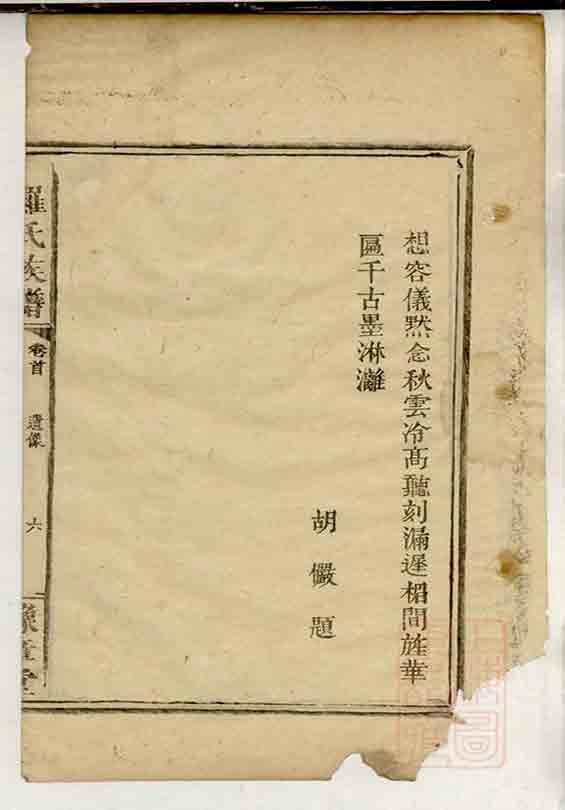 想容儀黙念秋雲冷高聽刻漏遲楣間旌華
區千古墨淋灕
胡儼題
羅氏族譜
卷首
遺像
六
豫章堂